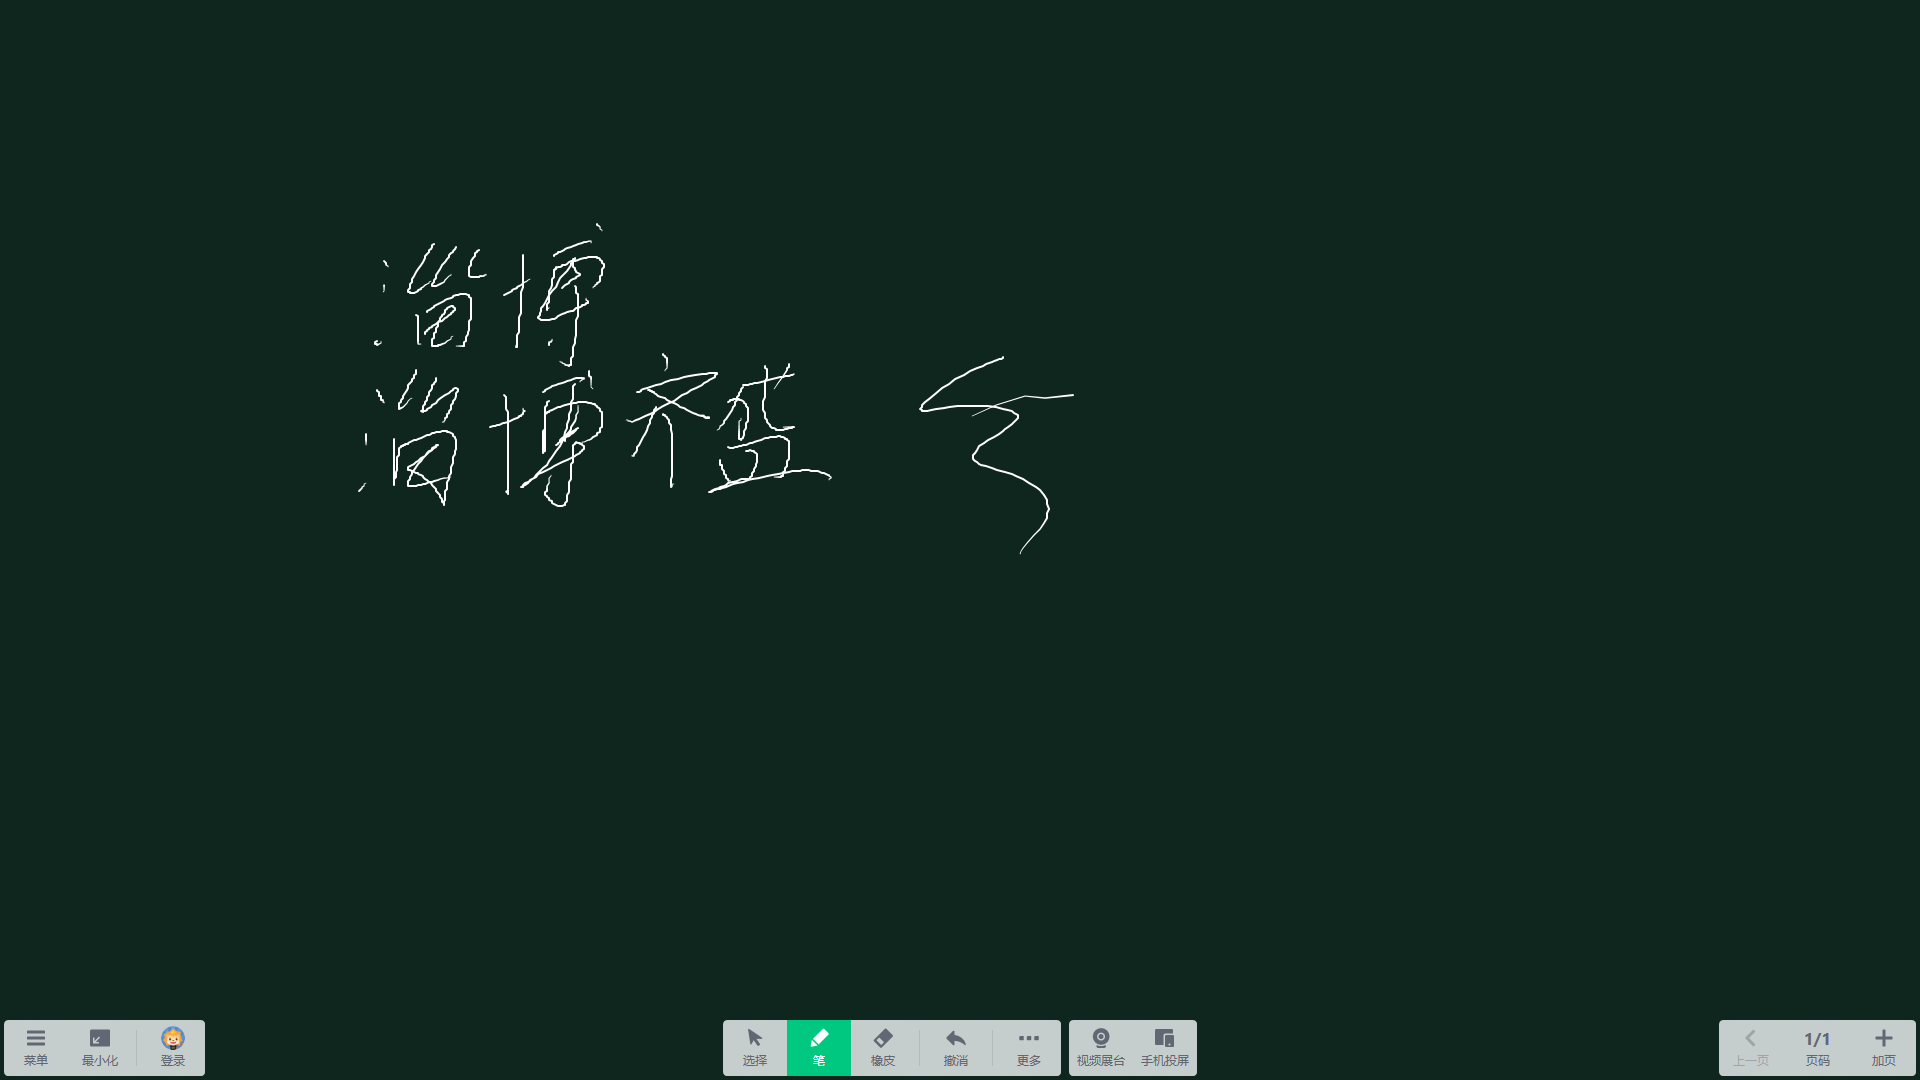 淄博
淄博齐盛
菜单 最小化 登录 选择 笔 橡皮 撤消 更多 视频展台 手机投屏 上一页 1/1 页码 加页